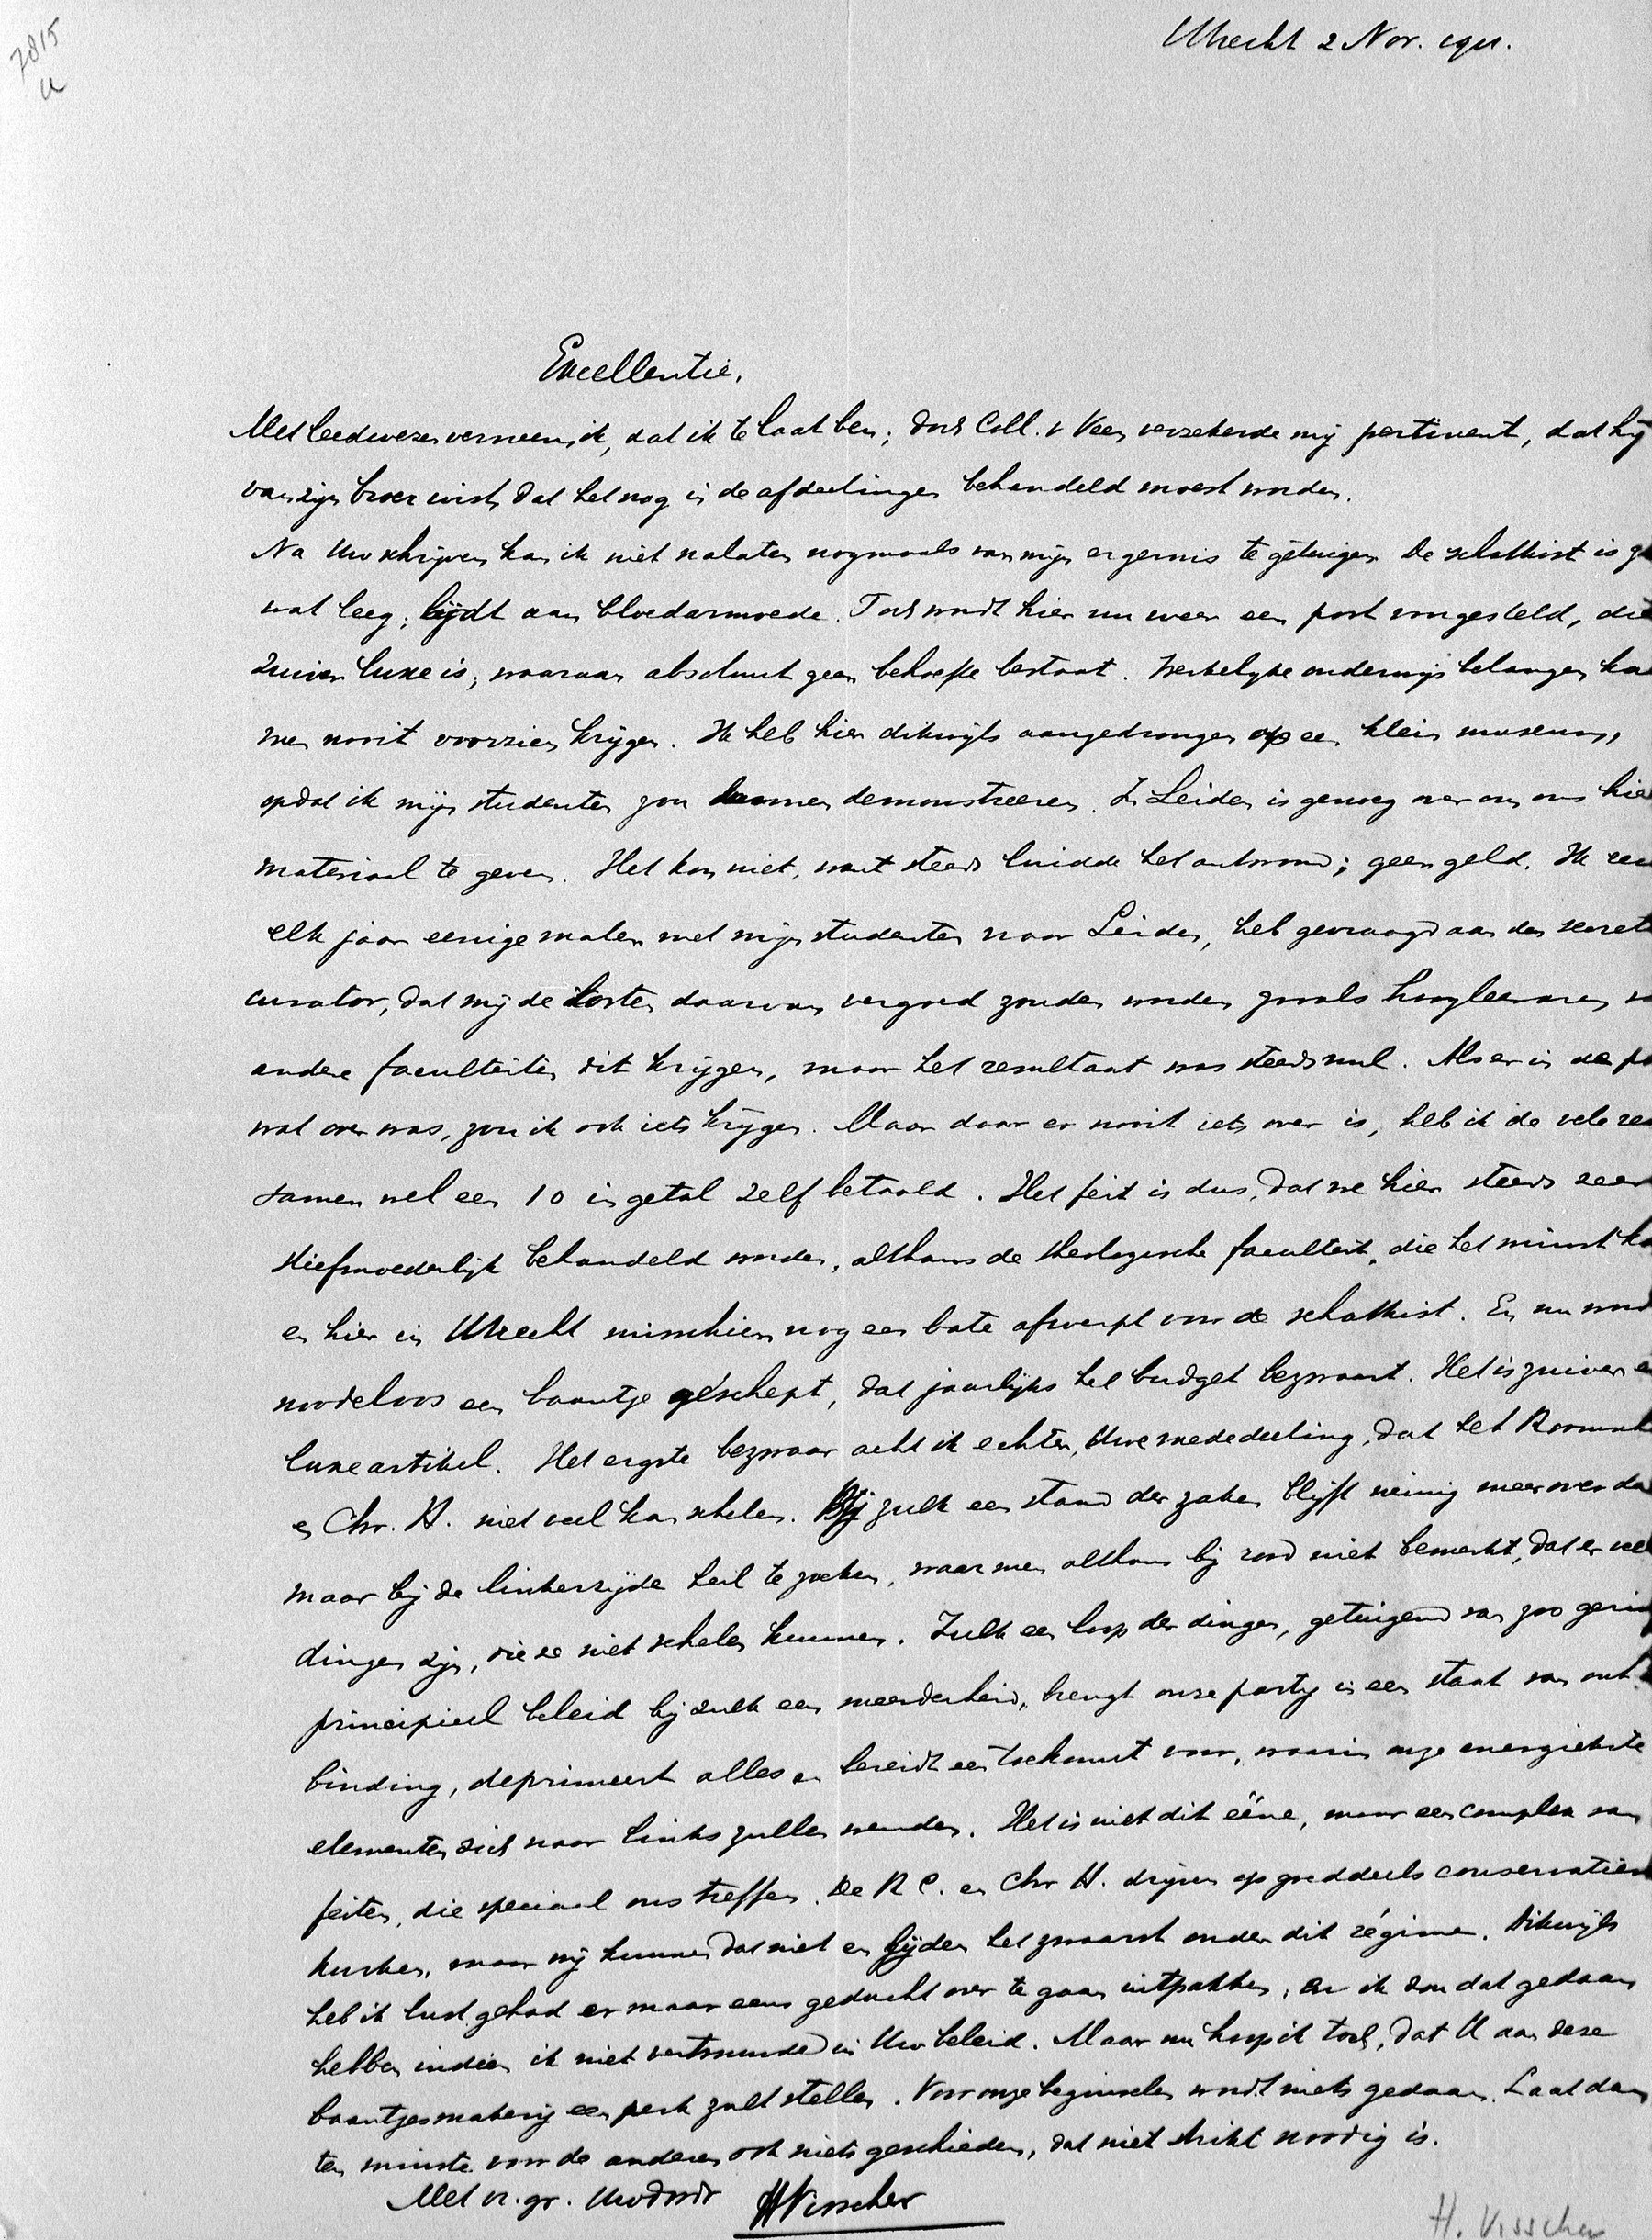 7815
Utrecht 2 Nov. 1911.
Excellentie,
Met leedwezen verneem ik, dat ik te laat ben; doch Coll. v Veen verzekerde mij pertinent, dat hij
van zijn broer wist, dat het nog in de afdeelingen behandeld moest worden.
Na Uw schrijven kan ik niet nalaten nogmaals van mijn ergernis te getuigen. De schatkist is
wat leeg, lijdt aan bloedarmoede. Toch wordt hier nu weer een post voorgesteld, die
zuiver luxe is, waaraan absoluut geen behoefte bestaat. Werkelijke onderwijs belangen
men nooit voorzien krijgen. Ik heb hier dikwijls aangedrongen op een klein museum,
opdat ik mijn studenten zou kunnen demonstreeren. In Leiden is genoeg over om ons hier
materiaal te geven. Het kan niet, want steeds luidde het antwoord; geen geld. Ik
elk jaar eenige malen met mijn studenten naar Leiden, heb gevraagd aan den
curator, dat mij de kosten daarvan vergoed zouden worden zooals hoogleeraren
andere faculteiten dit krijgen, maar het resultaat was steeds nul. Als er in de
wat over was, zou ik ook iets krijgen. Maar daar er nooit iets over is, heb ik de vele
samen wel een 10 in getal zelf betaald. Het feit is dus, dat we hier steeds zeer
stiefmoederlijk behandeld worden, althans de theologische faculteit, die het minst
en hier in Utrecht misschien nog een bate afwerpt voor de schatkist. En nu wordt
noodeloos een baantje geschept, dat jaarlijks het budget bezwaart. Het is zuiver
luxe artikel. Het ergste bezwaar acht ik echter, Uwe mededeeling, dat het Roomsch
en Chr. H. niet veel kan schelen. Bij zulk een stand der zaken blijft weinig meer over dan
maar bij de linkerzijde heil te zoeken, waar men althans bij rood niet bemerkt, dat er veel
dingen zijn, die ze niet schelen kunnen. Zulk een loop der dingen, getuigend van zoo gering
principieel beleid bij zulk een meerderheid, brengt onze partij in een staat van ont-
binding, deprimeert alles en bereidt een toekomst voor, waarin onze energiekste
elementen zich naar links zullen wenden. Het is niet dit ééne, maar een complex van
feiten, die speciaal ons treffen. De R C. en Chr H. drijven op goeddeels conservatieve
kurken, maar wij kunnen dat niet en lijden het zwaarst onder dit régime. Dikwijls
heb ik lust gehad er maar eens geducht over te gaan uitpakken, en ik zou dat gedaan
hebben indien ik niet vertrouwde in Uw beleid. Maar nu hoop ik toch, dat U aan deze
baantjesmakerij een perk zult stellen. Voor onze beginselen wordt niets gedaan. Laat dan
ten minste voor de anderen ook niets geschieden, dat niet strikt noodig is.
Met vr. gr. Uw dw dr
HVisscher
H. Visscher